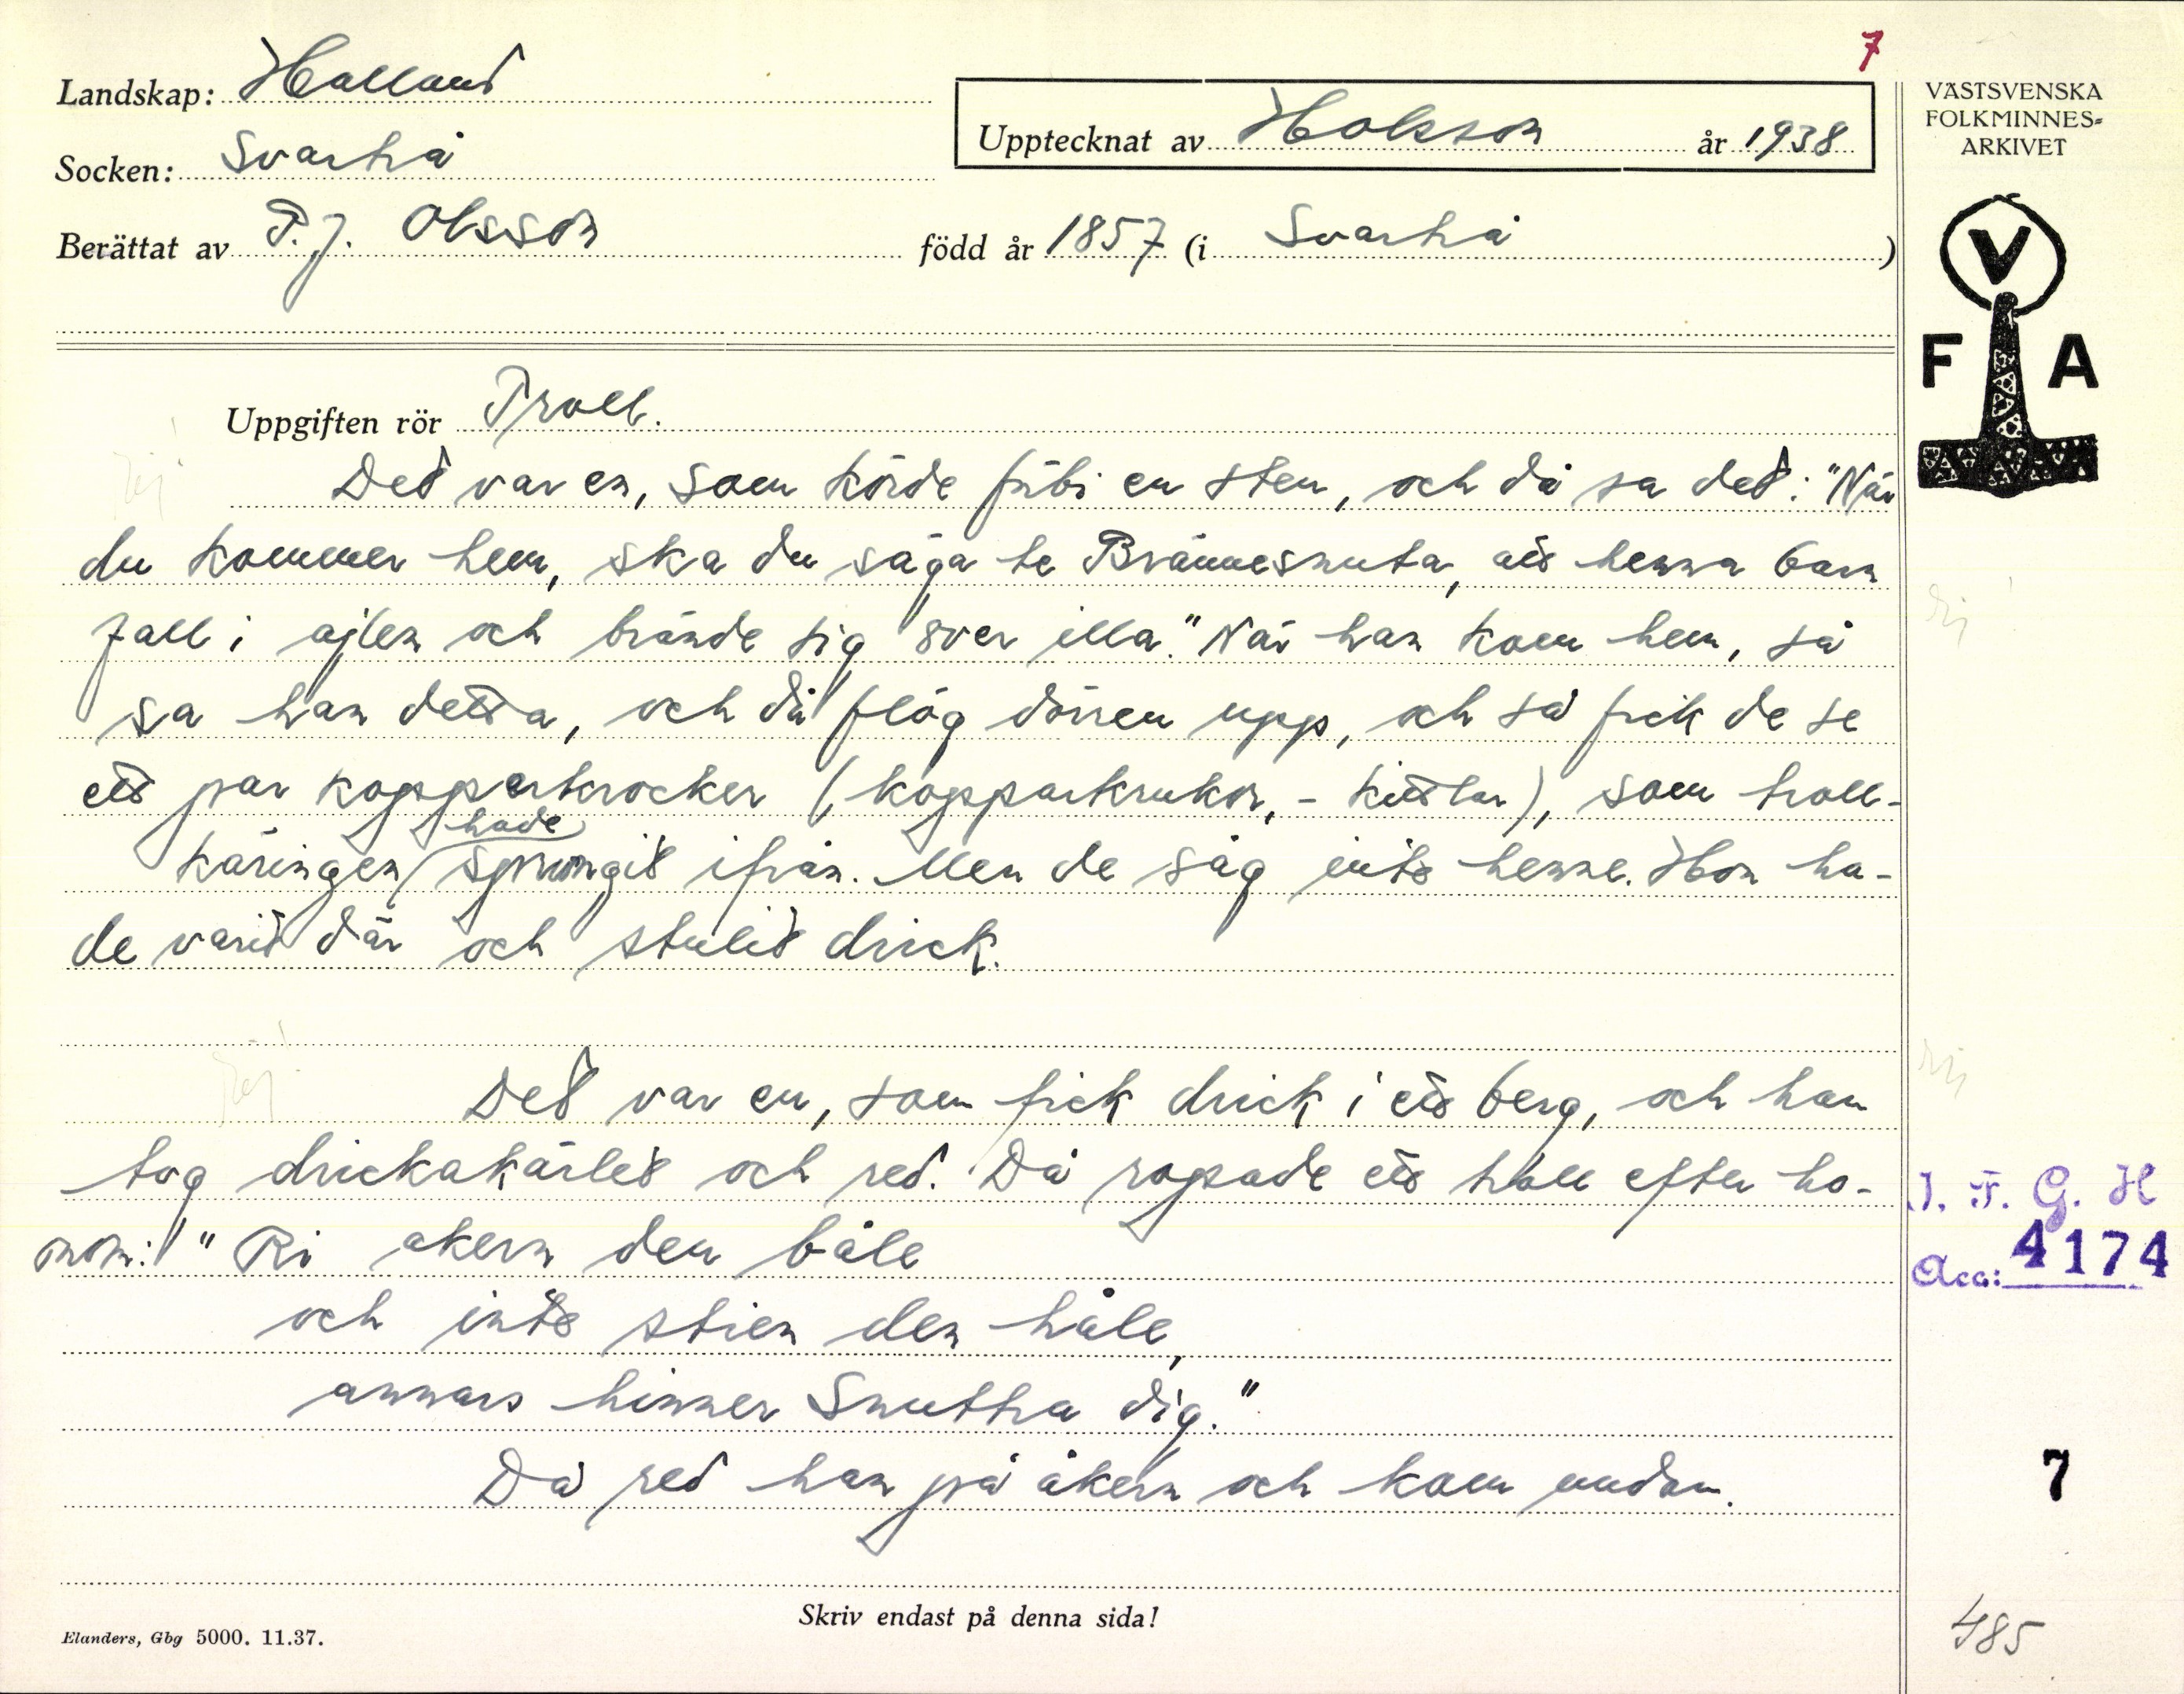 7
Landskap: Halland
Upptecknat av Holsson år 1938
Socken: Svartrå
Berättat av P.J. Olsson född år 1857 (i Svartrå)
VÄSTSVENSKA
FOLKMINNES=
ARKIVET
V
F A
Uppgiften rör Troll.
Det var en, som körde förbi en sten, och då sa det: "När
du kommer hem, ska du säga te Brännesnuta, att henna barn
fall i ajlen och brände sig över illa." När han kom hem, så
sa han detta, och då flög dörren upp, och så fick de se
ett par kopparkrocker (kopparkrukor, - kittlar), som troll-
käringen hade sprungit ifrån. Men de såg inte henne. Hon ha-
de varit där och stulit drick.
Det var en, som fick drick i ett berg, och han
tog drickakärlet och red. Då ropade ett troll efter ho-
nom: "Ri akern den båle
och inte stien den håle,
annars hinner Snuttra dig."
Då red han på åkern och kom undan.
I. F. G. H
Acc: 4174
7
485
Skriv endast på denna sida!
Elanders, Gbg 5000. 11.37.